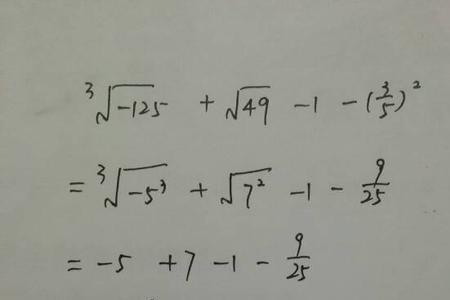 ³√-125 + √49 - 1 - (3/5)²
= ³√-5³ + √7² - 1 - 9/25
= -5 + 7 - 1 - 9/25